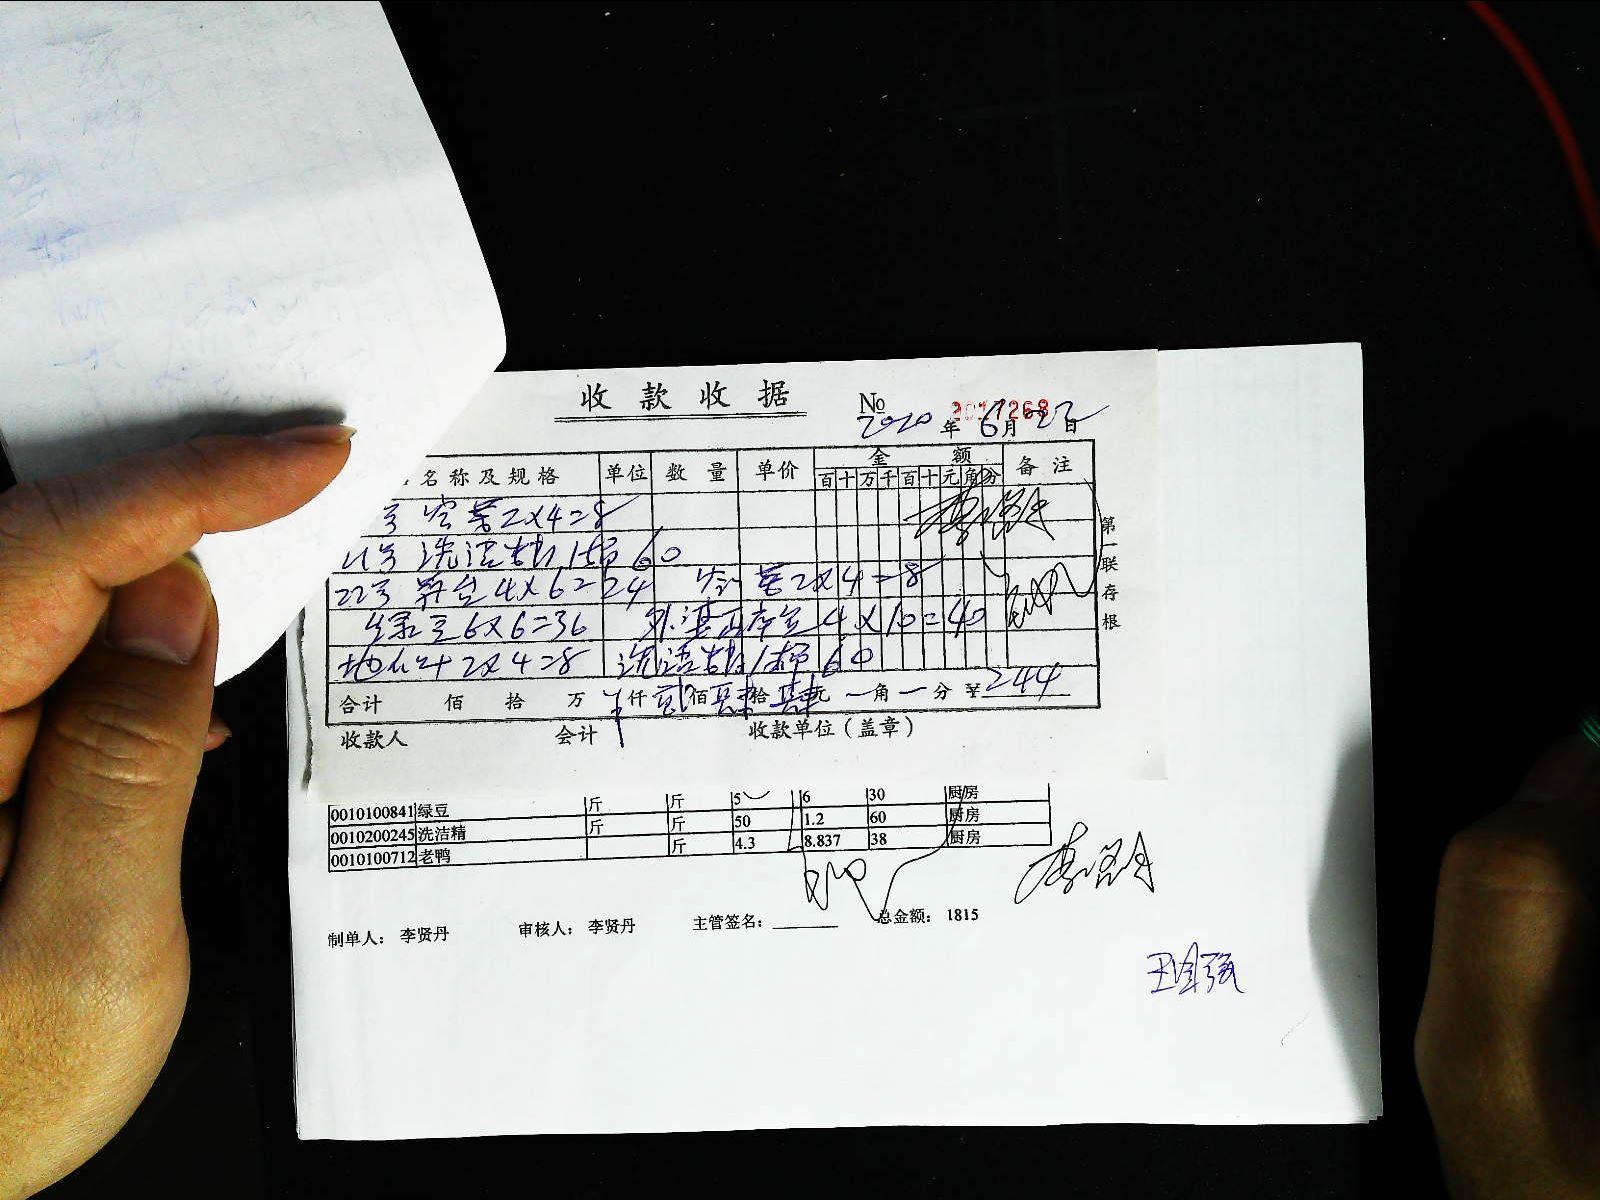 收款收据
No 2017268
2020年6月22日
名称及规格 单位 数量 单价 金额 备注
百十万千百十元角分
号 2×4=8
21号 洗洁精 1桶 60
22号 4×6=24 2×4=8
绿豆6×6=36 4×10=40
2×4=8 洗洁精1桶 60
合计 佰 拾 万 仟 贰佰肆拾肆元一角一分 ¥244
收款人 会计 收款单位（盖章）
第一联存根
0010100841 绿豆 斤 斤 5 6 30 厨房
0010200245 洗洁精 斤 斤 50 1.2 60 厨房
0010100712 老鸭 斤 4.3 8.837 38 厨房
制单人： 李贤丹 审核人： 李贤丹 主管签名： 总金额： 1815